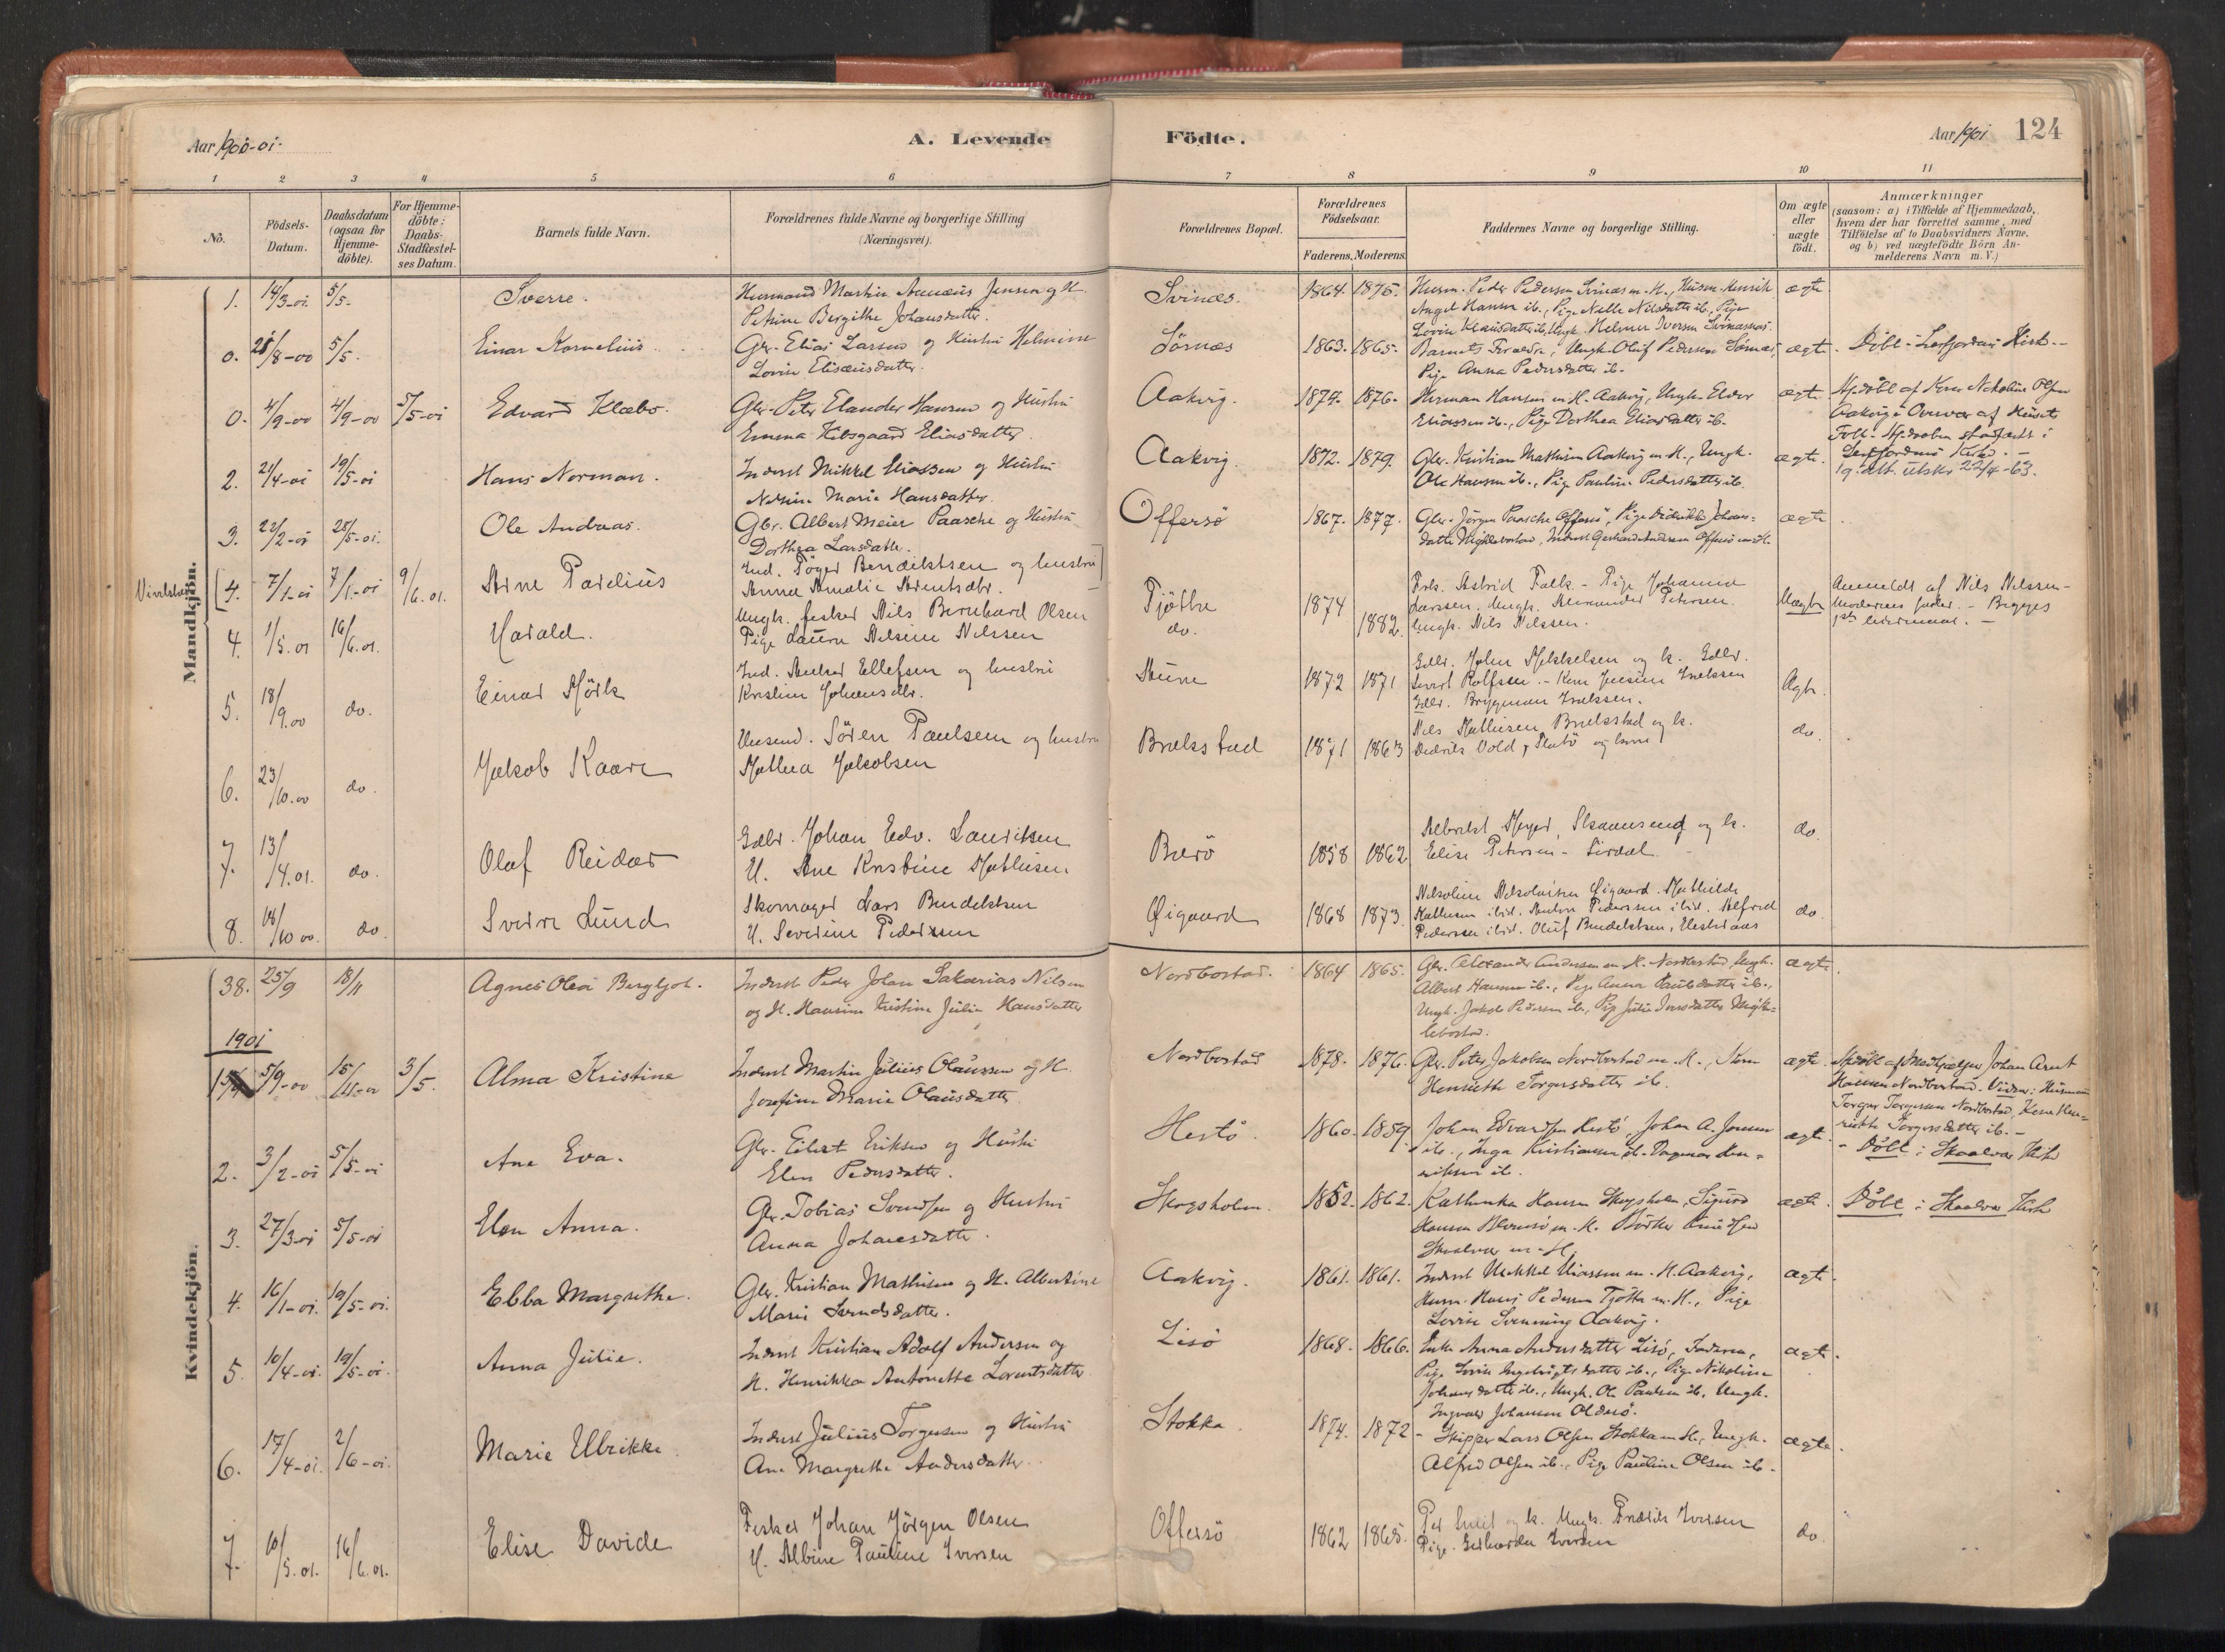 Aar 1900-01.
A. Levende
Födte.
Aar 1901
124
1 2 3 4 5 6 7 8 9 10 11
No.
Födsels-Datum.
Daabsdatum (ogsaa for Hjemme-döbte).
For Hjemme-döbte: Daabs-Stadfæstel-ses Datum.
Barnets fulde Navn.
Forældrenes fulde Navne og borgerlige Stilling (Næringsvei).
Forældrenes Bopæl.
Forældrenes Födselsaar.
Faderens. Moderens.
Faddernes Navne og borgerlige Stilling.
Om ægte eller uægte födt.
Anmærkninger
(saasom: a) i Tilfælde af Hjemmedaab,
hvem der har forrettet samme, med
Tilföielse af to Daabsvidners Navne,
og b) ved uægtefödte Börn An-
melderens Navn m. V.)
Mandkjön.
1. 14/3-01 5/5- Sverre. Husmand Martin Jensen og H.
Petrine Bergithe Johansdatter.
Svinæs. 1864. 1875. Husm. Peder Pedersen Svinæs m. H., Husm. Henrik
Angel Hansen ib., Pige Nelle Nilsdatter ib., Pige
Lovise Klausdatter ib., Ungk. Helmer Iversen
ægte
0. 28/8-00 5/5- Einar Kornelius Gbr. Elias Larsen og Hustru Helmine
Lovise Eliseusdatter.
Sörnæs 1863. 1865. Barnets Forældre, Ungk. Oluf Pedersen Sörnæs,
Pige Anna Pedersdatter ib.
ægte. Döbt i Leirfjordens Kirke
0. 4/9-00 4/9-00 5/5-01 Edvard Klæbo. Gbr. Peter Elander Hansen og Hustru
Emma Hibsgaard Eliasdatter
Aakvig. 1874. 1876. Herman Hansen m. H. Aakvig, Ungk. Elver
Eliassen ib., Pige Dorthea Eliasdatter ib.
ægte Hjdöbt af Kone Nikoline Olsen
Aakvig i Overvær af Husets
Folk. Hjdaaben stadfæstet i
Leirfjordens Kirke. -
2. 21/4-01 19/5-01 Hans Norman. Inderst Mikkel Eliassen og Hustru
Nilsine Marie Hansdatter.
Aakvig. 1872. 1879. Gbr. Kristian Mathisen Aakvig m. H., Ungk.
Ole Hansen ib., Pige Pauline Pedersdatter ib.
ægte. 19. att. utskr 22/4-63.
3. 22/2-01 28/5-01. Ole Andreas. Gbr. Albert Meier Paasche og Hustru
Dorthea Larsdatter.
Offersö 1867. 1877. Gbr. Jörgen Paasche Offersö, Pige Didrikke Johans-
datter Meglebostad, Inderst Gerhard Andersen Offersö m. H.
ægte
4. 7/1-01 7/1-01 9/6.01. Arne Parelius Ind. Töger Bendiktsen og hustru
Anna Amalie Arentsdtr.
4. 1/5.01 16/6.01. Harald. Ungk. fisker Nils Bernhard Olsen
Pige Laura Nilsine Nilssen
Tjötta
do. 1874 1882. Frk. Astrid Falk - Pige Johanna
Larssen. Ungk. Alexander Petersen.
Ungk. Nils Nilssen.
Uægte Anmeldt af Nils Nilssen -
Moderens fader. - Begges
1ste leiermaal. -
5. 18/9.00 do. Einar Mörk Ind. Anker Ellefsen og hustru
Kristine Johansdtr.
1872 1871 Gdbr. John Mikkelsen og h. Gdbr.
Sivert Rolfssen. - Kone Jensine Isaksen
Gdbr. Bryggman Isaksen.
Ægte.
6. 23/10.00 do. Jakob Kaare Husmd. Sören Paulsen og hustru
Mathea Jakobsen
Brækstad 1871 1863 Nils Mathisen Brækstad og h.
Didrik Vold, og hustru
do.
7. 13/4.01. do. Olaf Reidar Gdbr. Johan Edv. Lauritsen
H. Ane Kristine Mathisen
Bærö 1858 1862 Albrikt Meyer, Skaansend og h.
Elise Petersen - Sirdal
do.
8. 18/10 00. do. Sverre Lund Skomager Lars Bendiktsen
H. Severine Pedersen
Öigaard 1868 1873 Nilsoline Nilsolaisen Öigaard. Mathilde
Mathisen ibid. Anton Pederssen ibid. Alfred
Pedersen ibid. Oluf Bendiktsen,
do.
Kvindekjön.
38. 25/9 18/11 Agnes Olea Bergljot. Inderst Peder Johan Sakarias Nilsen
og H. Hansine Kristine Julie Hansdatter
Nordbostad. 1864 1865. Gbr. Alexander Andersen m. H. Nordbostad, Ungk.
Albert Hansen ib., Pige Anna Paulsdatter ib.,
Ungk. Jakob Pedersen ib., Pige Julie Iversdatter Megle-
bostad.
ægte.
1901
1. 5/9-00 15/11-00 3/5. Alma Kristine Inderst Martin Julius Olaussen og H.
Josefine Marie Olausdatter
Nordbostad 1878. 1876. Gbr. Peter Jakobsen Nordbostad m. H.,
Henriette Torgersdatter ib.
ægte Hjdöbt af Medhjælper Johan Arent
Hansen Nordbostad. Vidner: Husmand
Torger Torgersen Nordbostad, Kone Hen-
riette Torgersdatter ib. -
2. 3/2-01 5/5-01 Ane Eva. Gbr. Eilert Eriksen og Hustru
Elen Pedersdatter.
Hestö. 1860. 1859. Johan Edvardsen Hestö, Johan A. Jensen
ib., Inga Kristiansen ib. Dagmar Hen-
riksen ib.
ægte. - Döbt i Skaalvær Kirke
3. 27/3-01 5/5-01 Elen Anna. Gbr. Tobias Svendsen og Hustru
Anna Johansdatter.
Skogsholm. 1852. 1862. Kathinka Hansen Skogsholm, Sigurd
Hansen Blomsö m. H. Knudsen
Skaalvær m. H.
ægte. Döbt i Skaalvær Kirke
4. 16/1-01. 19/5-01. Ebba Margrethe. Gbr. Kristian Mathisen og H. Albertine
Marie Svendsdatter.
Aakvig. 1861. 1861. Inderst Mikkel Eliassen m. H. Aakvig,
Husm. Hans Pedersen Tjötta m. H., Pige
Lovise Svenning Aakvig.
ægte.
5. 10/4-01. 19/5-01. Anna Julie. Inderst Kristian Adolf Andersen og
H. Henrikka Antonette Lorentsdatter
Lisö 1868. 1866. Enke Anna Andersdatter Lisö, Faderen,
Pige Lovise Ingebrigtsdatter ib., Pige Nikoline
Johansdatter ib., Ungk. Ole Paulsen ib., Ungk.
Ingvald Johansen Oldersö.
ægte.
6. 17/4-01. 2/6-01. Marie Ulrikke. Inderst Julius Torgersen og Hustru
Ane Margrethe Andersdatter.
Stokka. 1874. 1872 - Skipper Lars Olsen Stokka m. H., Ungk.
Alfred Olsen ib., Pige Pauline Olsen ib.
ægte.
7. 10/5.01. 16/6.01. Elise Davide Fisker Johan Jörgen Olsen
H. Albine Pauline Iversen
Offersö 1862 1865. og h. Ungk. Fredrik Iversen
Pige. Gerharda Iversen
do.